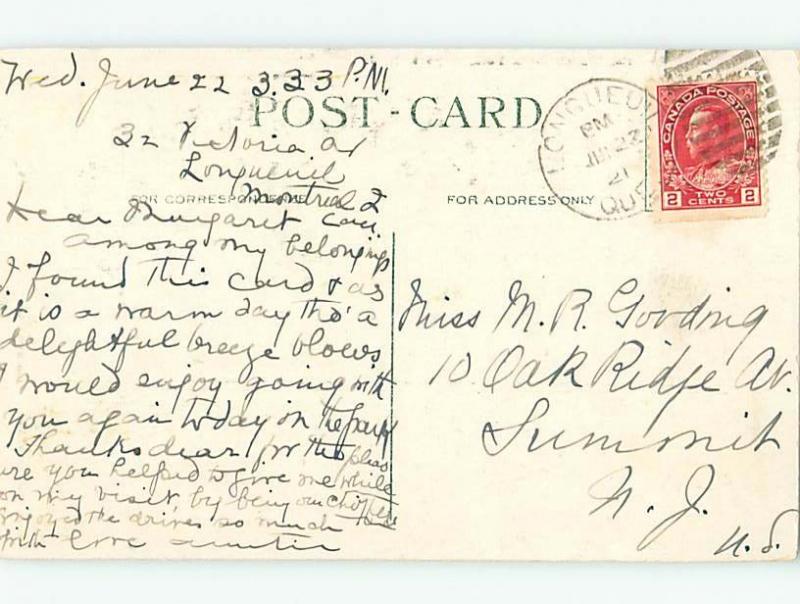 Wed. June 22 3.33 P.M.
POST-CARD
32 Victoria av
Longueuil
Montreal 2
FOR CORRESPONDENCE
Dear Margaret Can.
among my belongings
I found this card & as
it is a warm day tho' a
delightful breeze blows
I would enjoy going with
you again today on the
Thanks dear for the pleas
ure you helped to give me while
on my visit, by being our
enjoyed the drives so much
with love auntie
FOR ADDRESS ONLY
LONGUEUIL
PM
JU 22
21
QUE
CANADA POSTAGE
2 TWO CENTS 2
Miss M. R. Gooding
10 Oak Ridge Av.
Summit
N. J.
U. S.